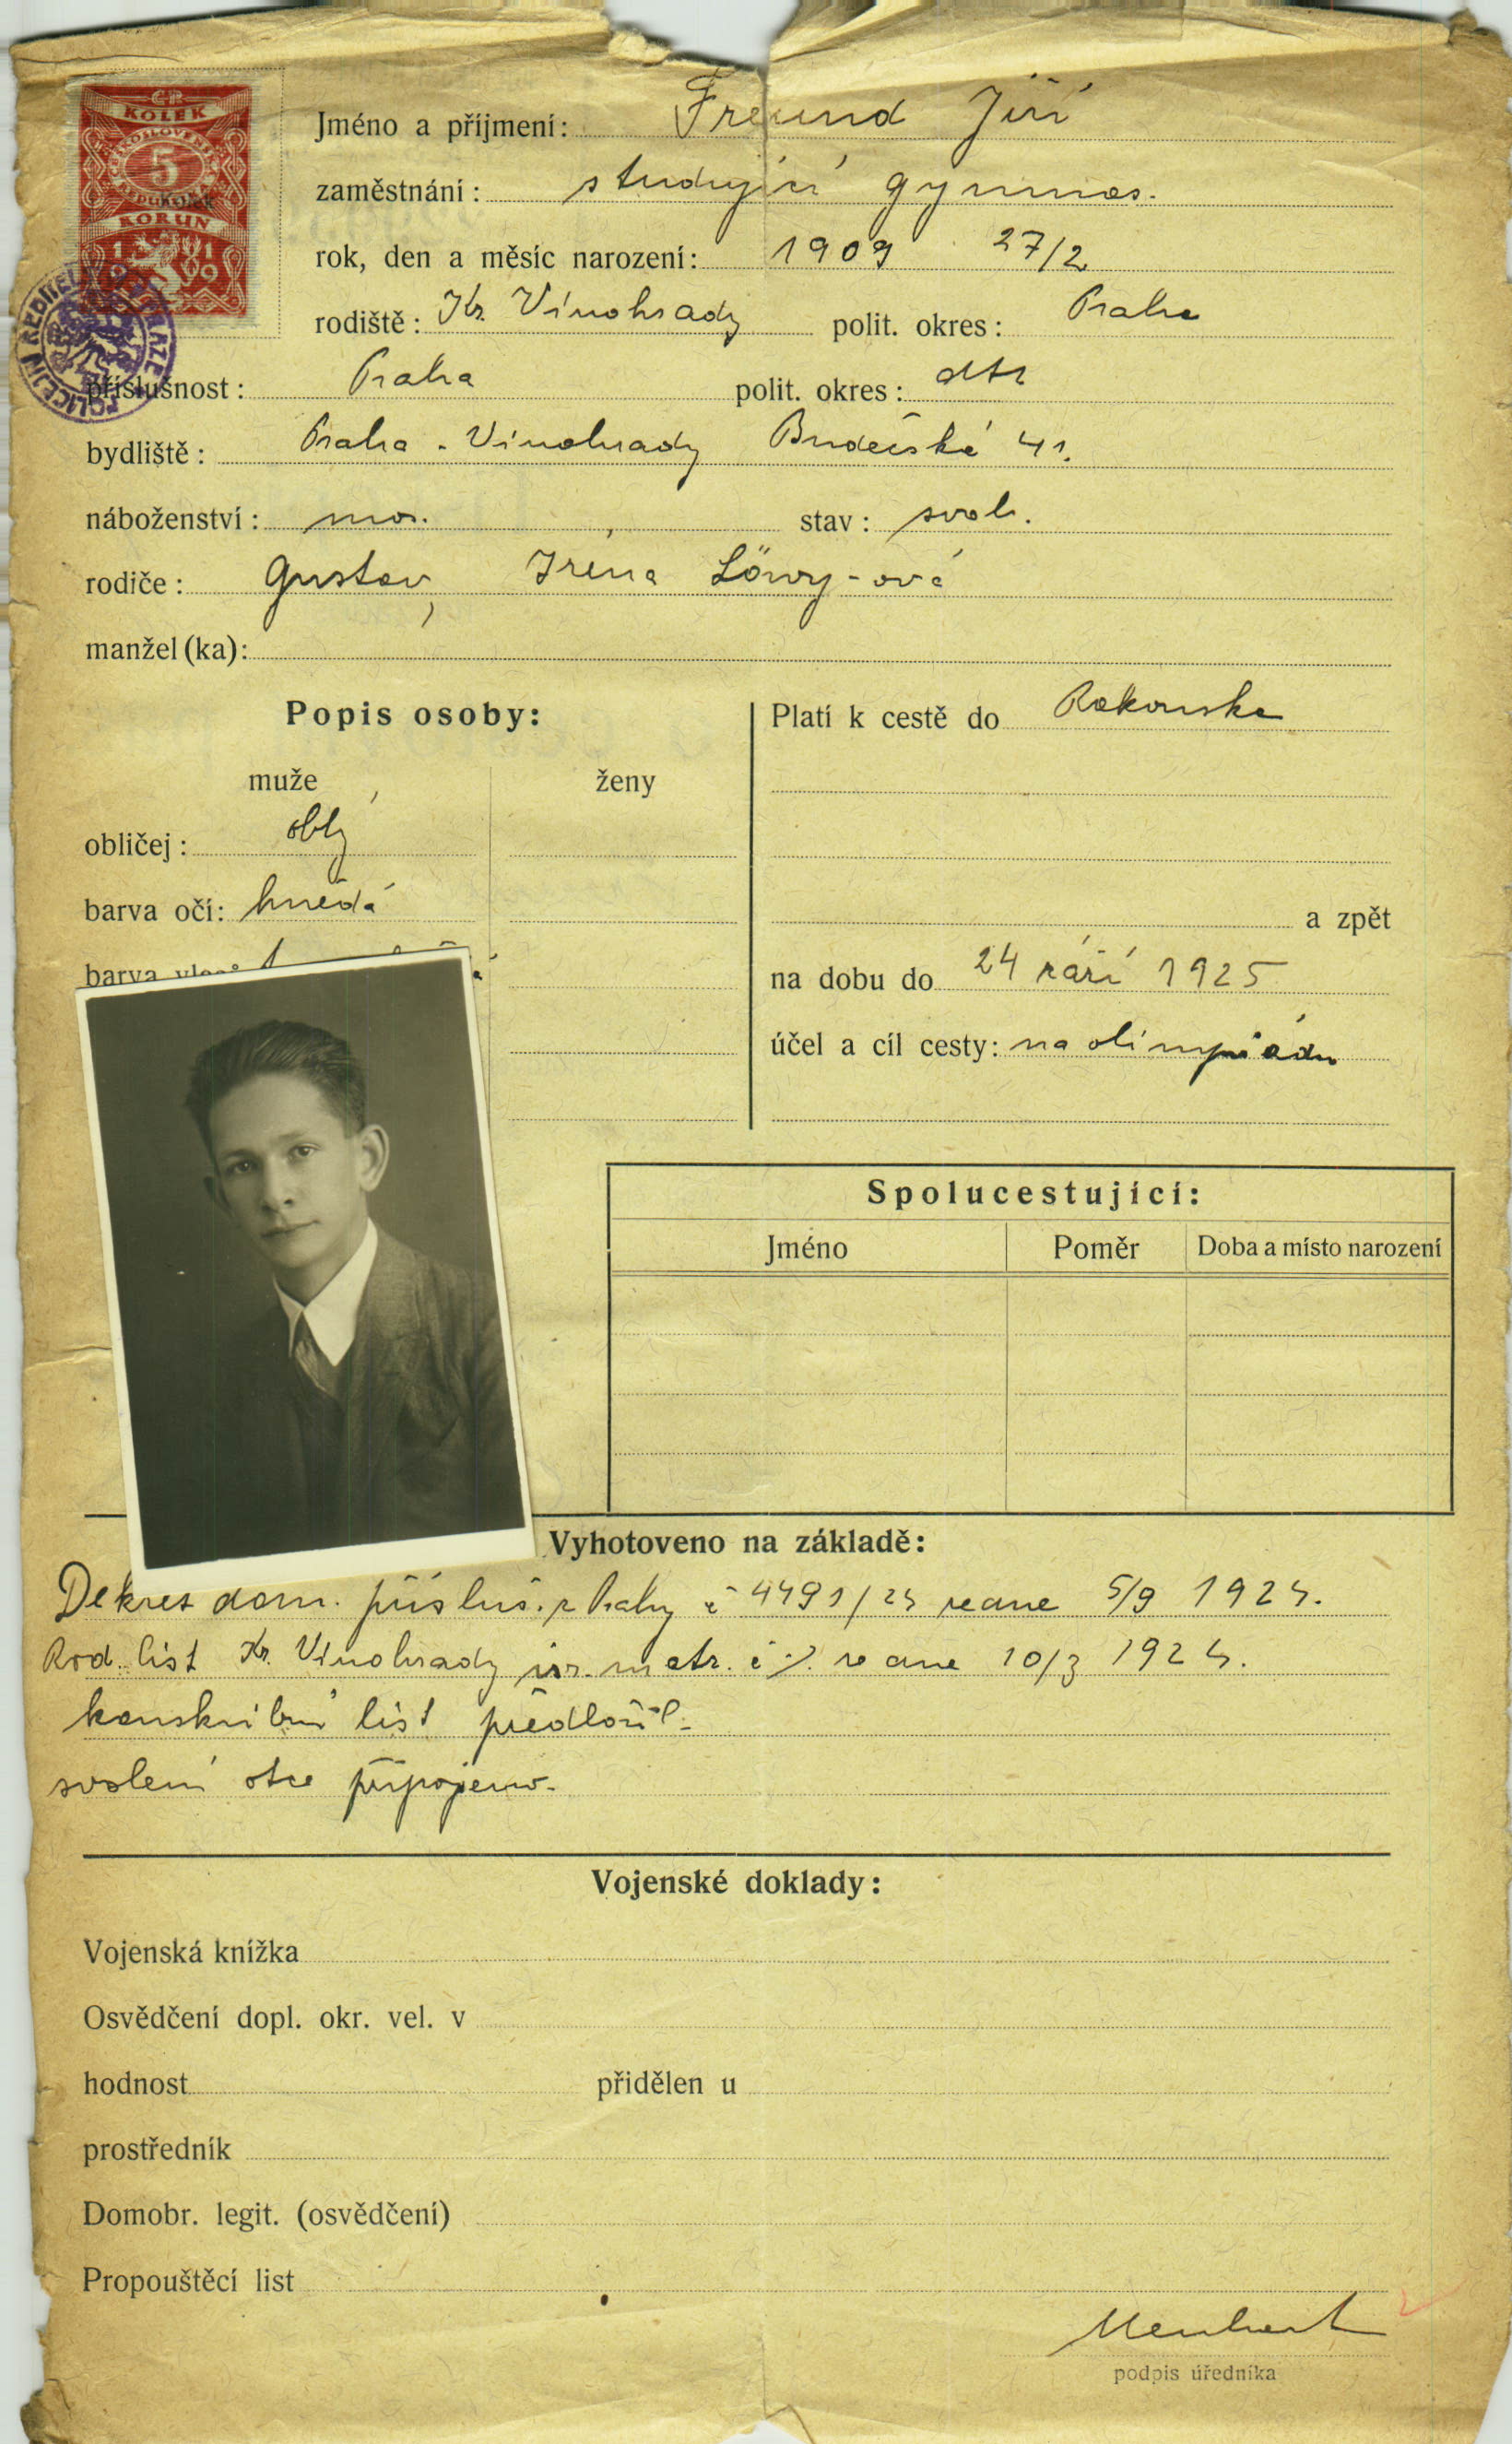 KOLEK
ČESKOSLOVENSKÁ
5
REPUBLIKA
KORUN
1919
POLICEJNÍ ŘEDITELSTVÍ V PRAZE
Jméno a příjmení: Freund Jiří
zaměstnání: studující gymnas.
rok, den a měsíc narození: 1909 27/2
rodiště: Kr. Vinohrady polit. okres: Praha
příslušnost: Praha polit. okres: dto
bydliště: Praha - Vinohrady Budečská 41.
náboženství: mos. stav: svob.
rodiče: Gustav, Irena Löwy-ová
manžel(ka):
Popis osoby:
muže ženy
obličej: oblý
barva očí: hnědá
barva
Platí k cestě do Rakouska
a zpět
na dobu do 24 září 1925
účel a cíl cesty: na olimpiádu
Spolucestující:
Jméno Poměr Doba a místo narození
Vyhotoveno na základě:
Dekret dom. přísluš. z Prahy č 4491/24 ze dne 5/9 1924.
Rod. list Kr. Vinohrady isr. matr. č ze dne 10/3 1924.
konskribní list předložil.
svolení otce připojeno.
Vojenské doklady:
Vojenská knížka
Osvědčení dopl. okr. vel. v
hodnost přidělen u
prostředník
Domobr. legit. (osvědčení)
Propouštěcí list
podpis úředníka